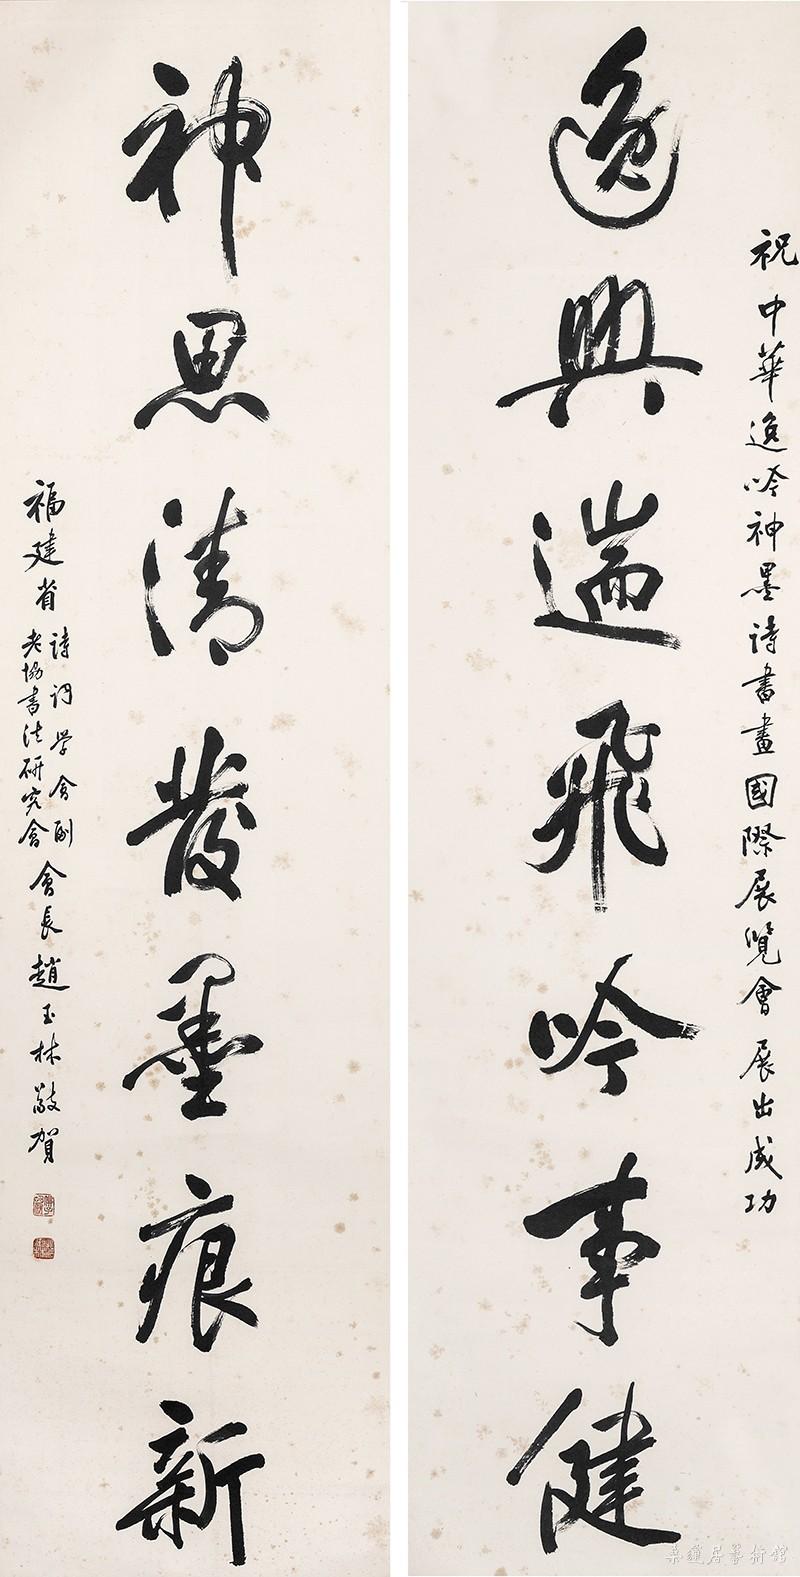 祝中華逸吟神墨詩書畫國際展覽會展出成功
逸興遄飛吟事健
神思清發墨痕新
福建省
詩詞学會副
老協書法研究會
會長趙玉林敬賀